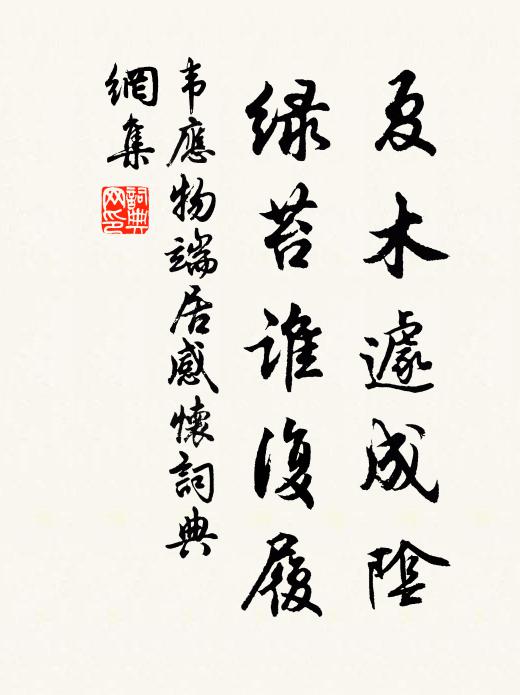 夏木遽成陰
緑苔誰復履
韦應物端居感懷詞典
網集
詞典
网印